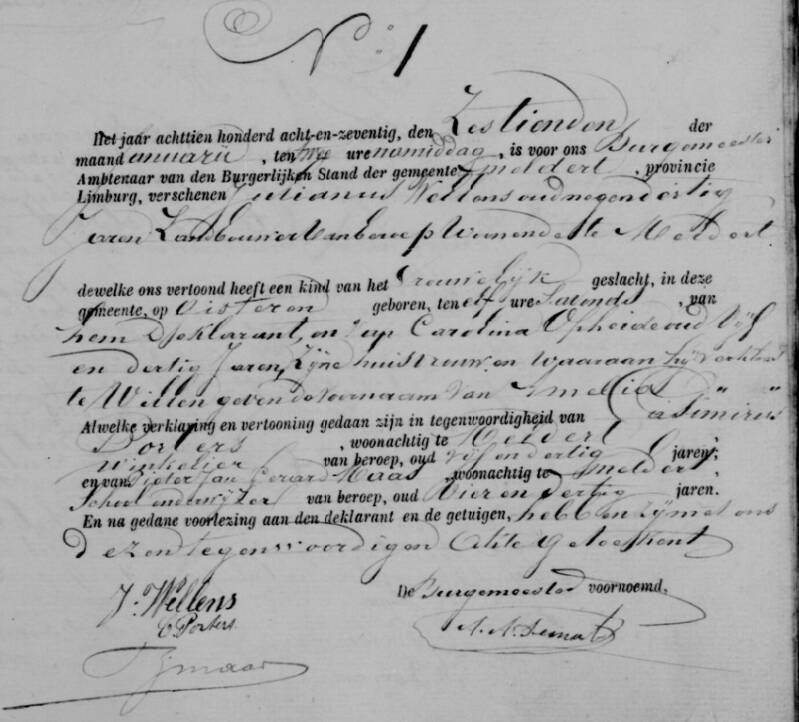 N° 1
Het jaar achttien honderd acht-en-zeventig, den Zestienden der
maand Januarii, ten twee ure namiddag, is voor ons Burgemeester
Ambtenaar van den Burgerlijken Stand der gemeente Meldert, provincie
Limburg, verschenen Julianus Wellens oud negen dertig
Jaren Landbouwer Van beroep Wonende te Meldert
dewelke ons vertoond heeft een kind van het Vrouwelijk geslacht, in deze
gemeente, op Gisteren geboren, ten elf ure S'avonds, van
hem Deklarant, en van Carolina Opheide oud Vijf
en dertig Jaren, Zijne huisvrouw, en waaraan hij verklaart
te Willen geven de voornaam Van Amelia
Alwelke verklaring en vertooning gedaan zijn in tegenwoordigheid van Casimirus
Porters, woonachtig te Meldert,
Winkelier van beroep, oud Vijf en dertig jaren,
en van Pieter Jan Gerard Maas, woonachtig te Meldert,
Schoolonderwijzer van beroep, oud Vier en dertig jaren.
En na gedane voorlezing aan den deklarant en de getuigen, hebben zij met ons
dezen tegenwoordigen Akte geteekent
J. Wellens De Burgemeester voornoemd,
C Porters